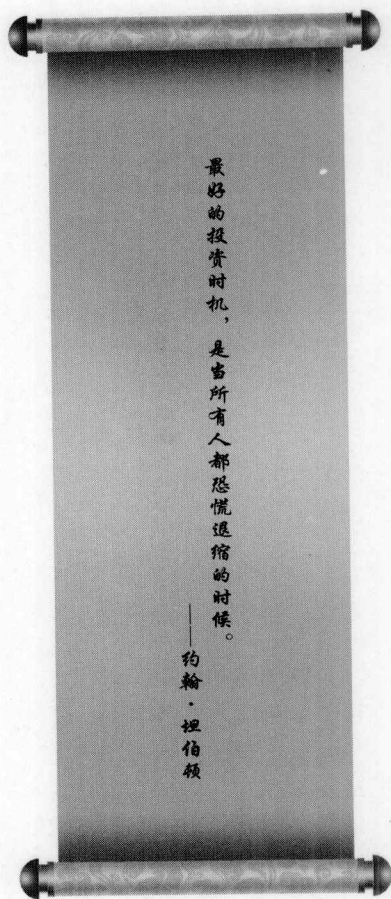 最好的投资时机，是当所有人都恐慌退缩的时候。
——约翰·坦伯顿